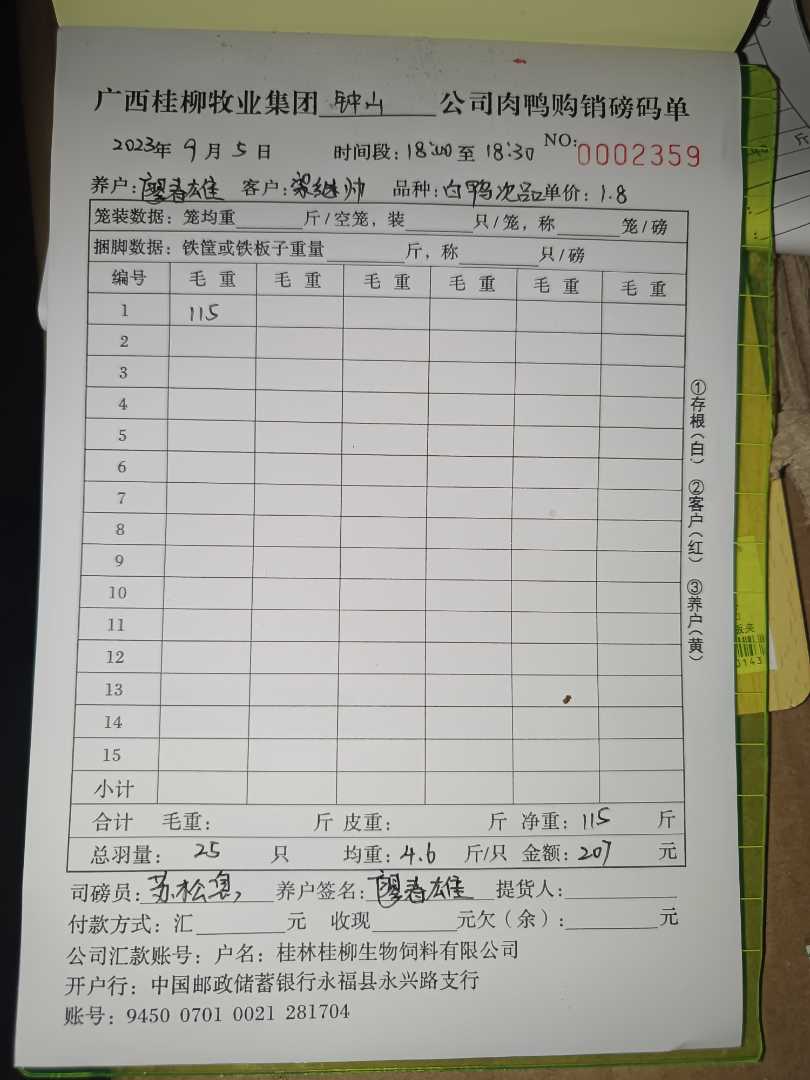 广西桂柳牧业集团 钟山 公司肉鸭购销磅码单
2023年 9 月 5 日 时间段：18:00 至 18:30 NO: 0002359
养户：廖春雄 客户：梁继帅 品种：白鸭次品 单价：1.8
笼装数据：笼均重______斤/空笼，装______只/笼，称______笼/磅
捆脚数据：铁筐或铁板子重量______斤，称______只/磅
编号 毛重 毛重 毛重 毛重 毛重 毛重
1 115
2
3
4
5
6
7
8
9
10
11
12
13
14
15
小计
合计 毛重： 斤 皮重： 斤 净重：115 斤
总羽量： 25 只 均重：4.6 斤/只 金额：207 元
司磅员：苏松 养户签名：廖春雄 提货人：
付款方式：汇______元 收现______元欠（余）：______元
公司汇款账号：户名：桂林桂柳生物饲料有限公司
开户行：中国邮政储蓄银行永福县永兴路支行
账号：9450 0701 0021 281704
①存根（白） ②客户（红） ③养户（黄）